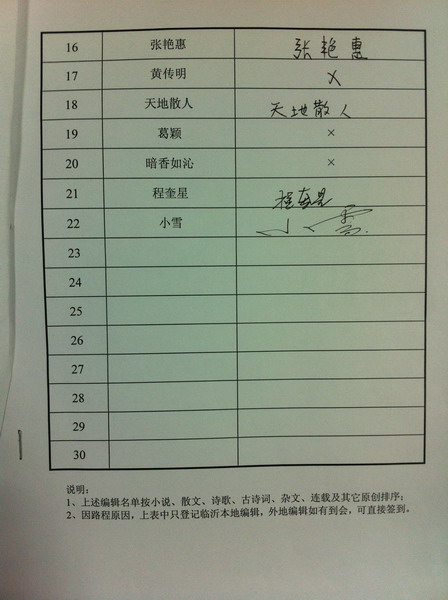 16 张艳惠 张艳惠
17 黄传明 ×
18 天地散人 天地散人
19 葛颖 ×
20 暗香如沁 ×
21 程奎星 程奎星
22 小雪 小雪
23
24
25
26
27
28
29
30
说明：
1、上述编辑名单按小说、散文、诗歌、古诗词、杂文、连载及其它原创排序；
2、因路程原因，上表中只登记临沂本地编辑，外地编辑如有到会，可直接签到。